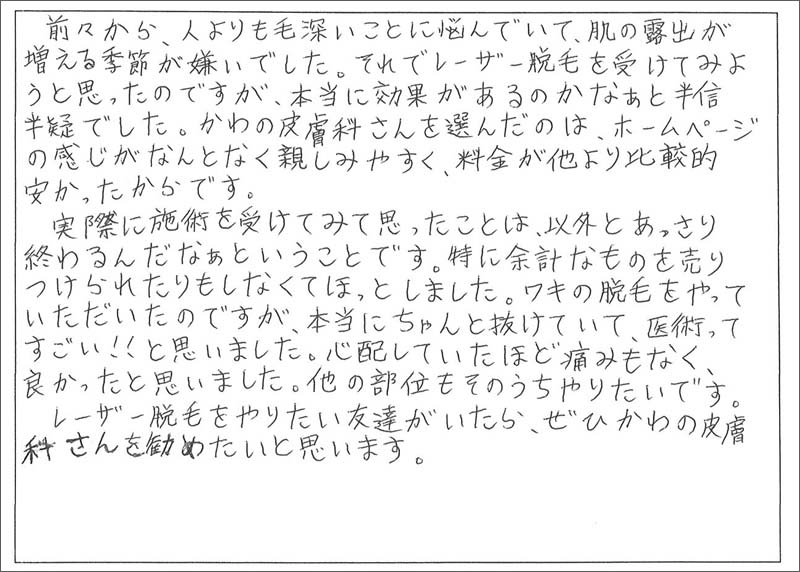 前々から、人よりも毛深いことに悩んでいて、肌の露出が
増える季節が嫌いでした。それでレーザー脱毛を受けてみよ
うと思ったのですが、本当に効果があるのかなぁと半信
半疑でした。かわの皮膚科さんを選んだのは、ホームページ
の感じがなんとなく親しみやすく、料金が他より比較的
安かったからです。
実際に施術を受けてみて思ったことは、以外とあっさり
終わるんだなぁということです。特に余計なものを売り
つけられたりもしなくてほっとしました。ワキの脱毛をやって
いただいたのですが、本当にちゃんと抜けていて、医術って
すごい!!と思いました。心配していたほど痛みもなく、
良かったと思いました。他の部位もそのうちやりたいです。
レーザー脱毛をやりたい友達がいたら、ぜひかわの皮膚
科さんを勧めたいと思います。